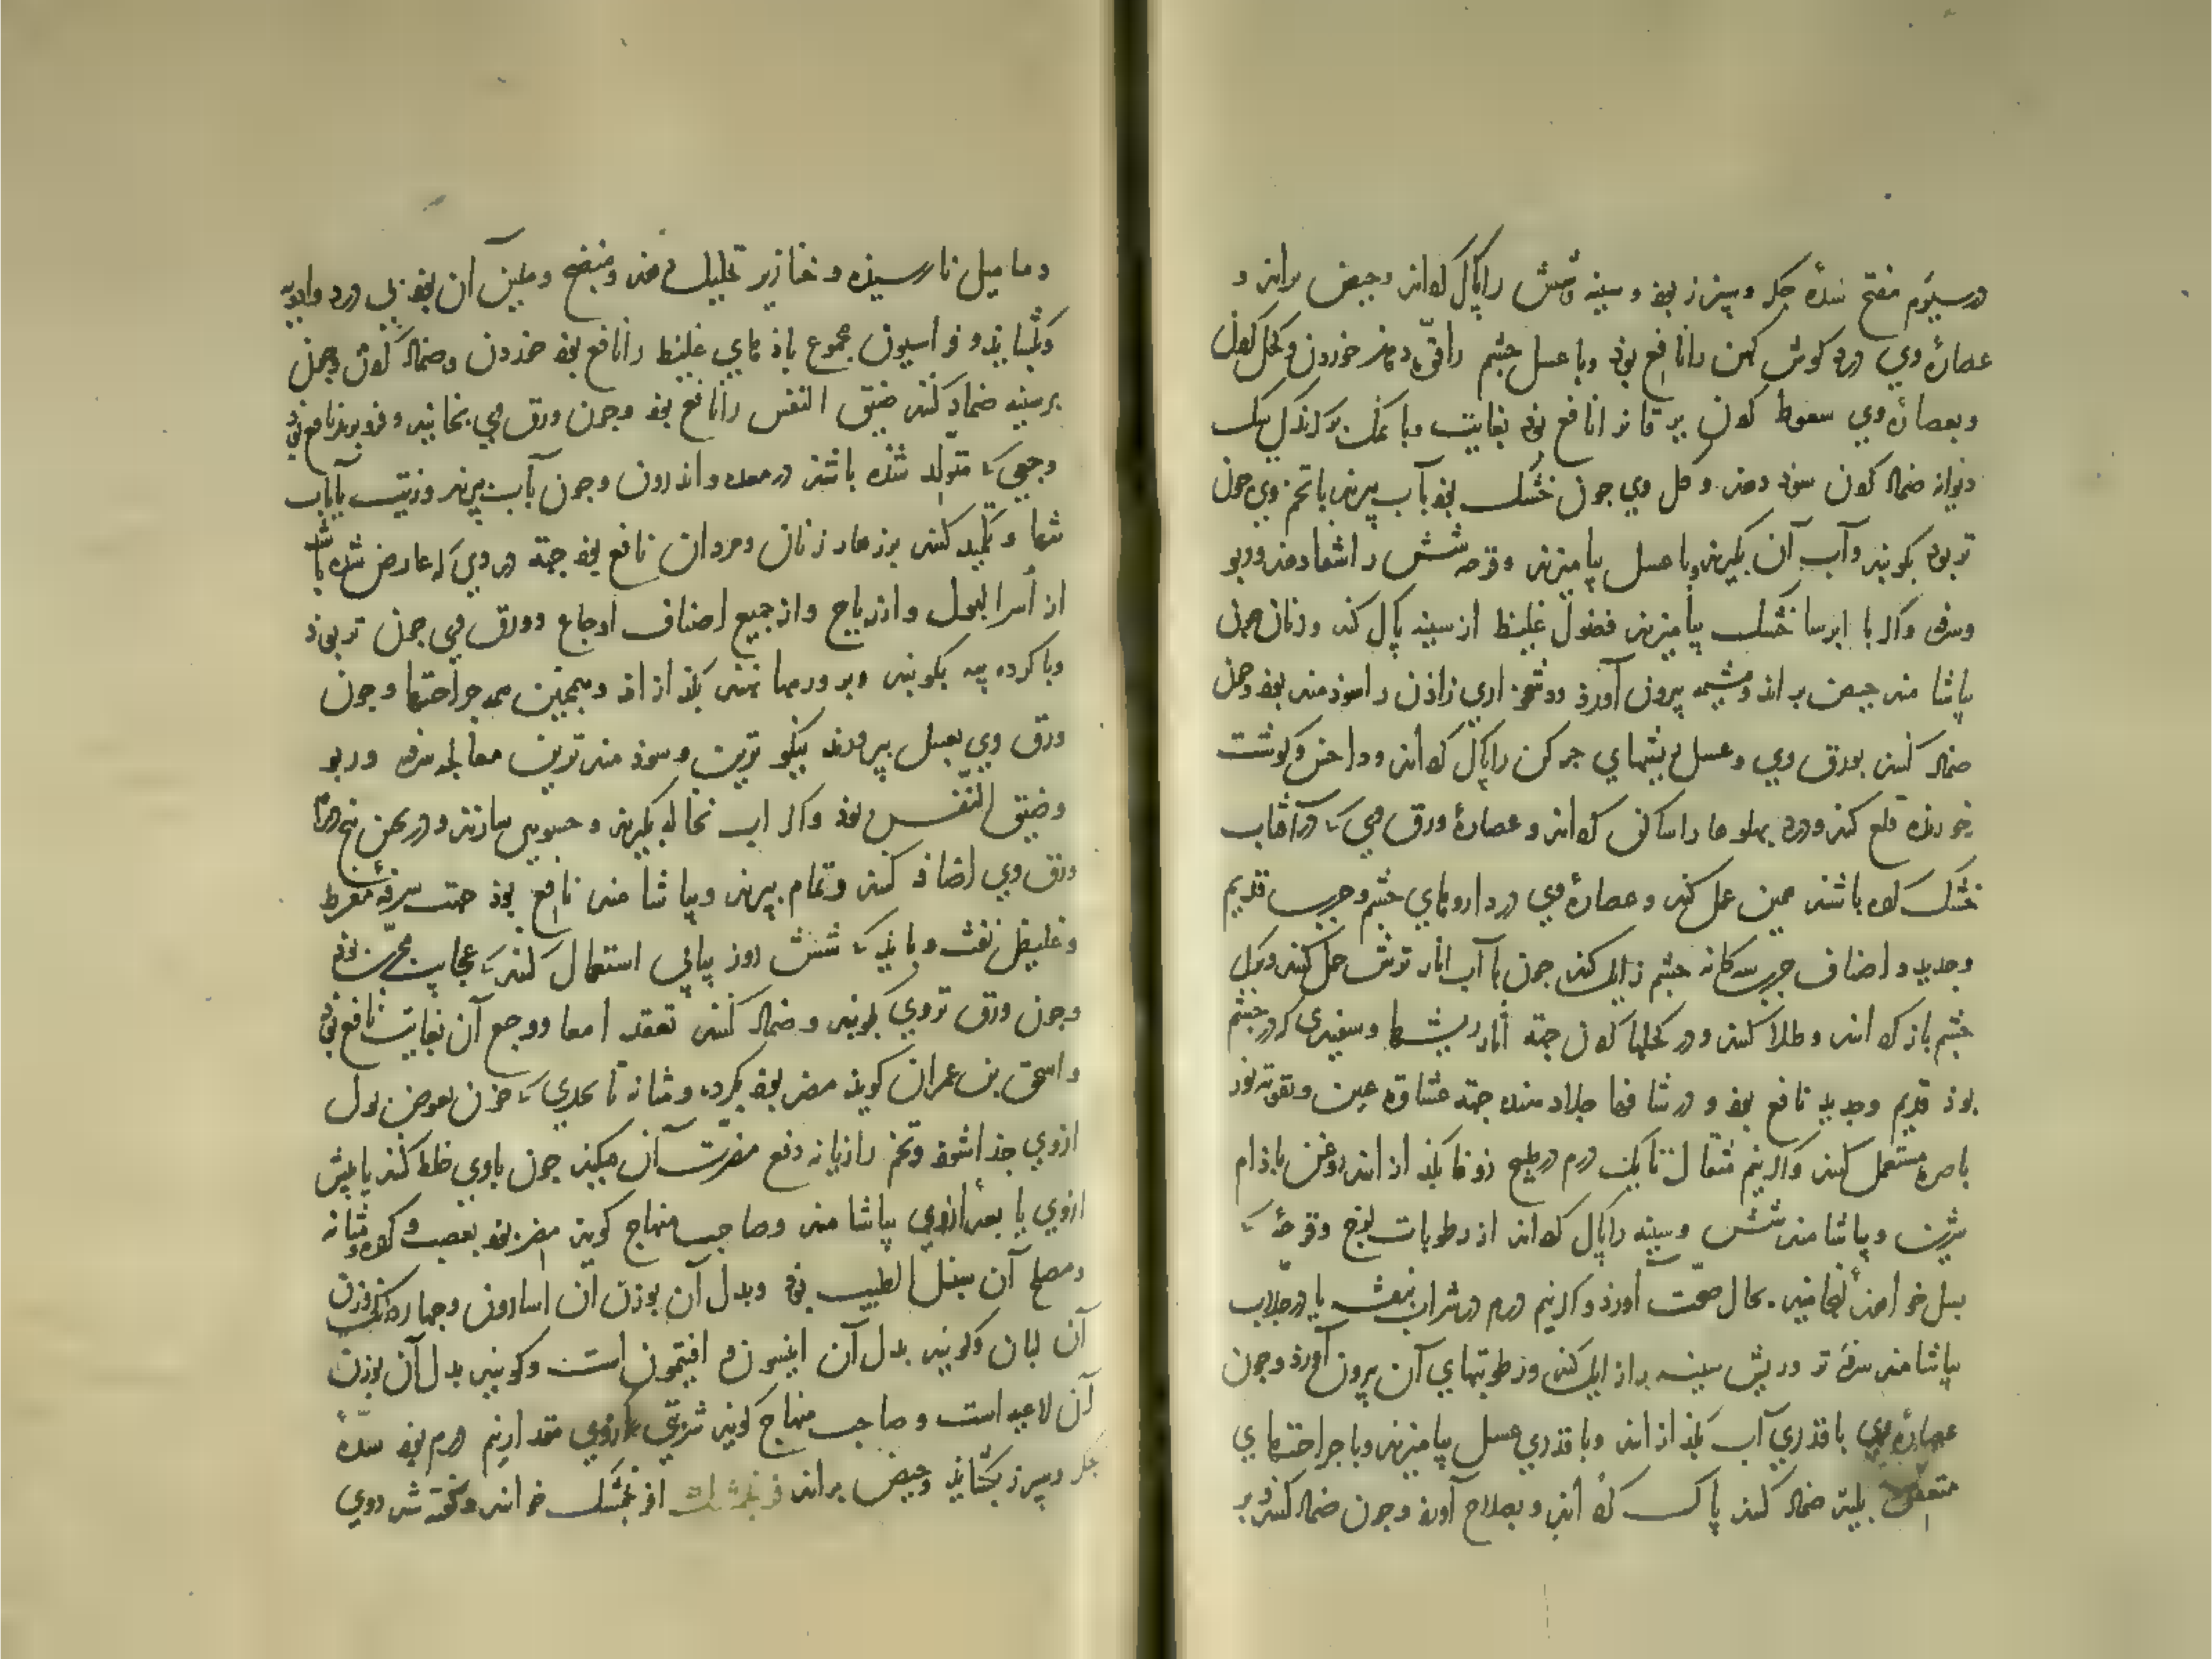 در سیوم مفتح سدهٔ جکر و سپرز بوذ و سینه و شش را پاک کرداند و حیض براند و
عصارهٔ وی درد کوش کهن را نافع بوذ و با عسل چشم را قوّة دهد خوردن و کحل کردن
و بعصارهٔ وی سعوط کردن یرقانرا نافع بوذ بغایت و با نمک بر کزندکی سک
دیوانه ضماد کردن سوذ دهد و کل وی چون خشک بوذ بآب بپزند با تخم وی چون
تر بوذ بکوبند و آب آن بکیرند و با عسل بیامیزند و قرحه شش را شفا دهد و ربو
و سرفه و اکر با ایرسا خشک بیامیزند فضول غلیظ از سینه پاک کند و زنان چون
بیاشامند حیض براند و مشیمه بیرون آورد و دشخواری زاذن را سوذمند بوذ و چون
ضماد کنند بورق وی و عسل ریشهای چرکن را پاک کرداند و داخس و کوشت
خورنده قلع کند و درد پهلوها را ساکن کرداند و عصارهٔ ورق وی که در آفتاب
خشک کرده باشند همین عمل کند و عصارهٔ وی در داروهای چشم و جرب قدیم
و جدید و اصناف جرب سه کانه چشم زایل کند چون با آب انار ترش حل کنند و پلک
چشم باز کردانند و طلا کنند و در کحلها کردن جهة آثار ریشها و سفیدی که در چشم
بوذ قدیم و جدید نافع بوذ و در شافها جلا دهنده جهة غشاوه عین و تقویة نور
باصره مستعمل کنند و اکر نیم مثقال تا یک درم در طبیخ زوفا بکذازانند و روغن باذام
شیرین و بیاشامند شش و سینه را پاک کرداند از رطوبات لزج و قرحهٔ که
بسل خواهد انجامید بحال صحّت آورد و اکر نیم درم در شراب بنفشه یا در جلاب
بیاشامند سرفه تر و ریش سینه را زایل کند و رطوبتهای آن بیرون آورد و چون
عصارهٔ وی با قذری آب بکذازانند و با قذری عسل بیامیزند و با جراحتهای
متعفن پلید ضماد کنند پاک کرداند و بصلاح آورد و چون ضماد کنند بر
دمامیل نارسیده و خنازیر تحلیل دهد و منضج و ملین آن بوذ بی درد و ادویه
و بکشایذ و فراسیون مجموع باذهای غلیظ را نافع بوذ خوردن و ضماد کردن و چون
بر سینه ضماد کنند ضیق النفس را نافع بوذ و چون ورق وی بخایند و فرو برند نافع بوذ
وجعی که متولّد شده باشد در معده و اندرون و چون بآب بپزند و زیت یا بآب
تنها و تکمید کنند بر زهار زنان و مردان نافع بوذ جهة دردی که عارض شده باشد
از اسر البول و از ریاح و از جمیع اصناف اوجاع و ورق وی چون تر بوذ
و با کرده پیه بکوبند و بر ورمها نهند بکذازاند و همچنین همه جراحتها و چون
ورق وی بعسل بپرورند نیکوترین و سوذمندترین معالجه سرفه و ربو
و ضیق النّفس بوذ و اکر آب نخاله بکیرند و حسوی سازند و در پختن پنج درم
ورق وی اضافه کنند و تمام بپزند و بیاشامند نافع بوذ جهت سرفهٔ مفرط
و غلیظ نفث و بایذ که شش روز پیاپی استعمال کنند که عجایب مجرّب بوذ
و چون ورق تر وی بکوبند و ضماد کنند تعقد امعا و وجع آن بغایت نافع بوذ
و اسحق بن عمران کویذ مضر بوذ بکرده و مثانه تا بحدی که خون بعوض بول
از وی جدا شوذ و تخم رازیانه دفع مضرّت آن میکند چون با وی خلط کنند یا پیش
از وی یا بعد از وی بیاشامند و صاحب منهاج کوید مضر بوذ بعصب و کرده و مثانه
و مصلح آن سنبل الطیب بوذ و بدل آن بوزن آن اسارون و چهار دانک وزن
آن لبان و کویند بدل آن انیسون و افتیمون است و کویند بدل آن بوزن
آن لاعیه است و صاحب منهاج کوید شربتی از وی مقدار نیم درم بوذ سدّهٔ
جکر و سپرز بکشایذ و حیض براند فرنجمشک افرنجمشک خوانند و کفته شد در وی